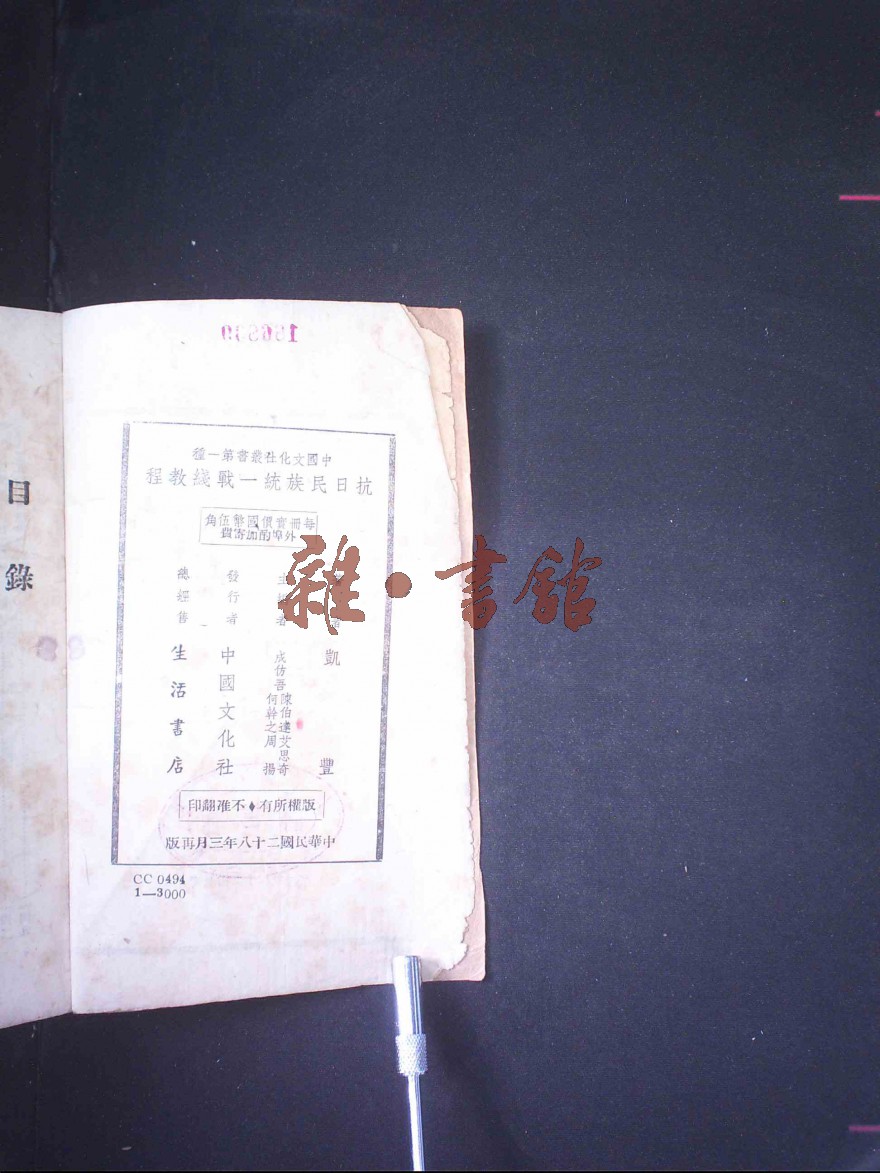 中國文化社叢書第一種
抗日民族統一戰綫教程
每冊實價國幣伍角
外埠酌加寄費
凱豐
主編者
成仿吾 陳伯達 艾思奇
何幹之 周揚
發行者
中國文化社
總經售
生活書店
版權所有♦不准翻印
中華民國二十八年三月再版
CC 0494
1—3000
目錄
雜·書館